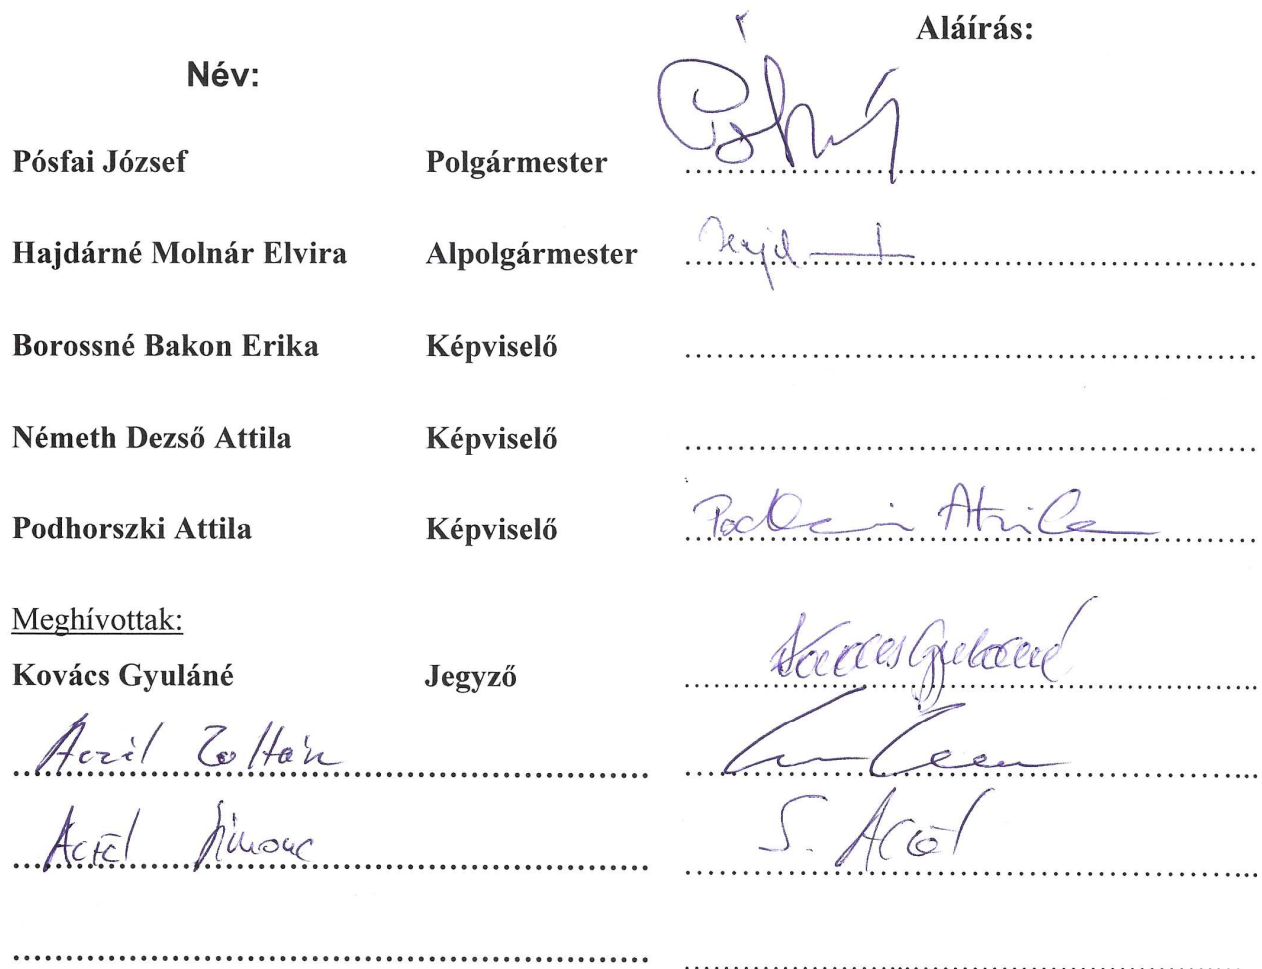 Aláírás:
Név:
Pósfai József Polgármester ..........
Hajdárné Molnár Elvira Alpolgármester ..........
Borossné Bakon Erika Képviselő ..........
Németh Dezső Attila Képviselő ..........
Podhorszki Attila Képviselő Attila
Meghívottak:
Kovács Gyuláné Jegyző Kovács Gyuláné
Aczél Zoltán
Aczél Simone S. Aczél